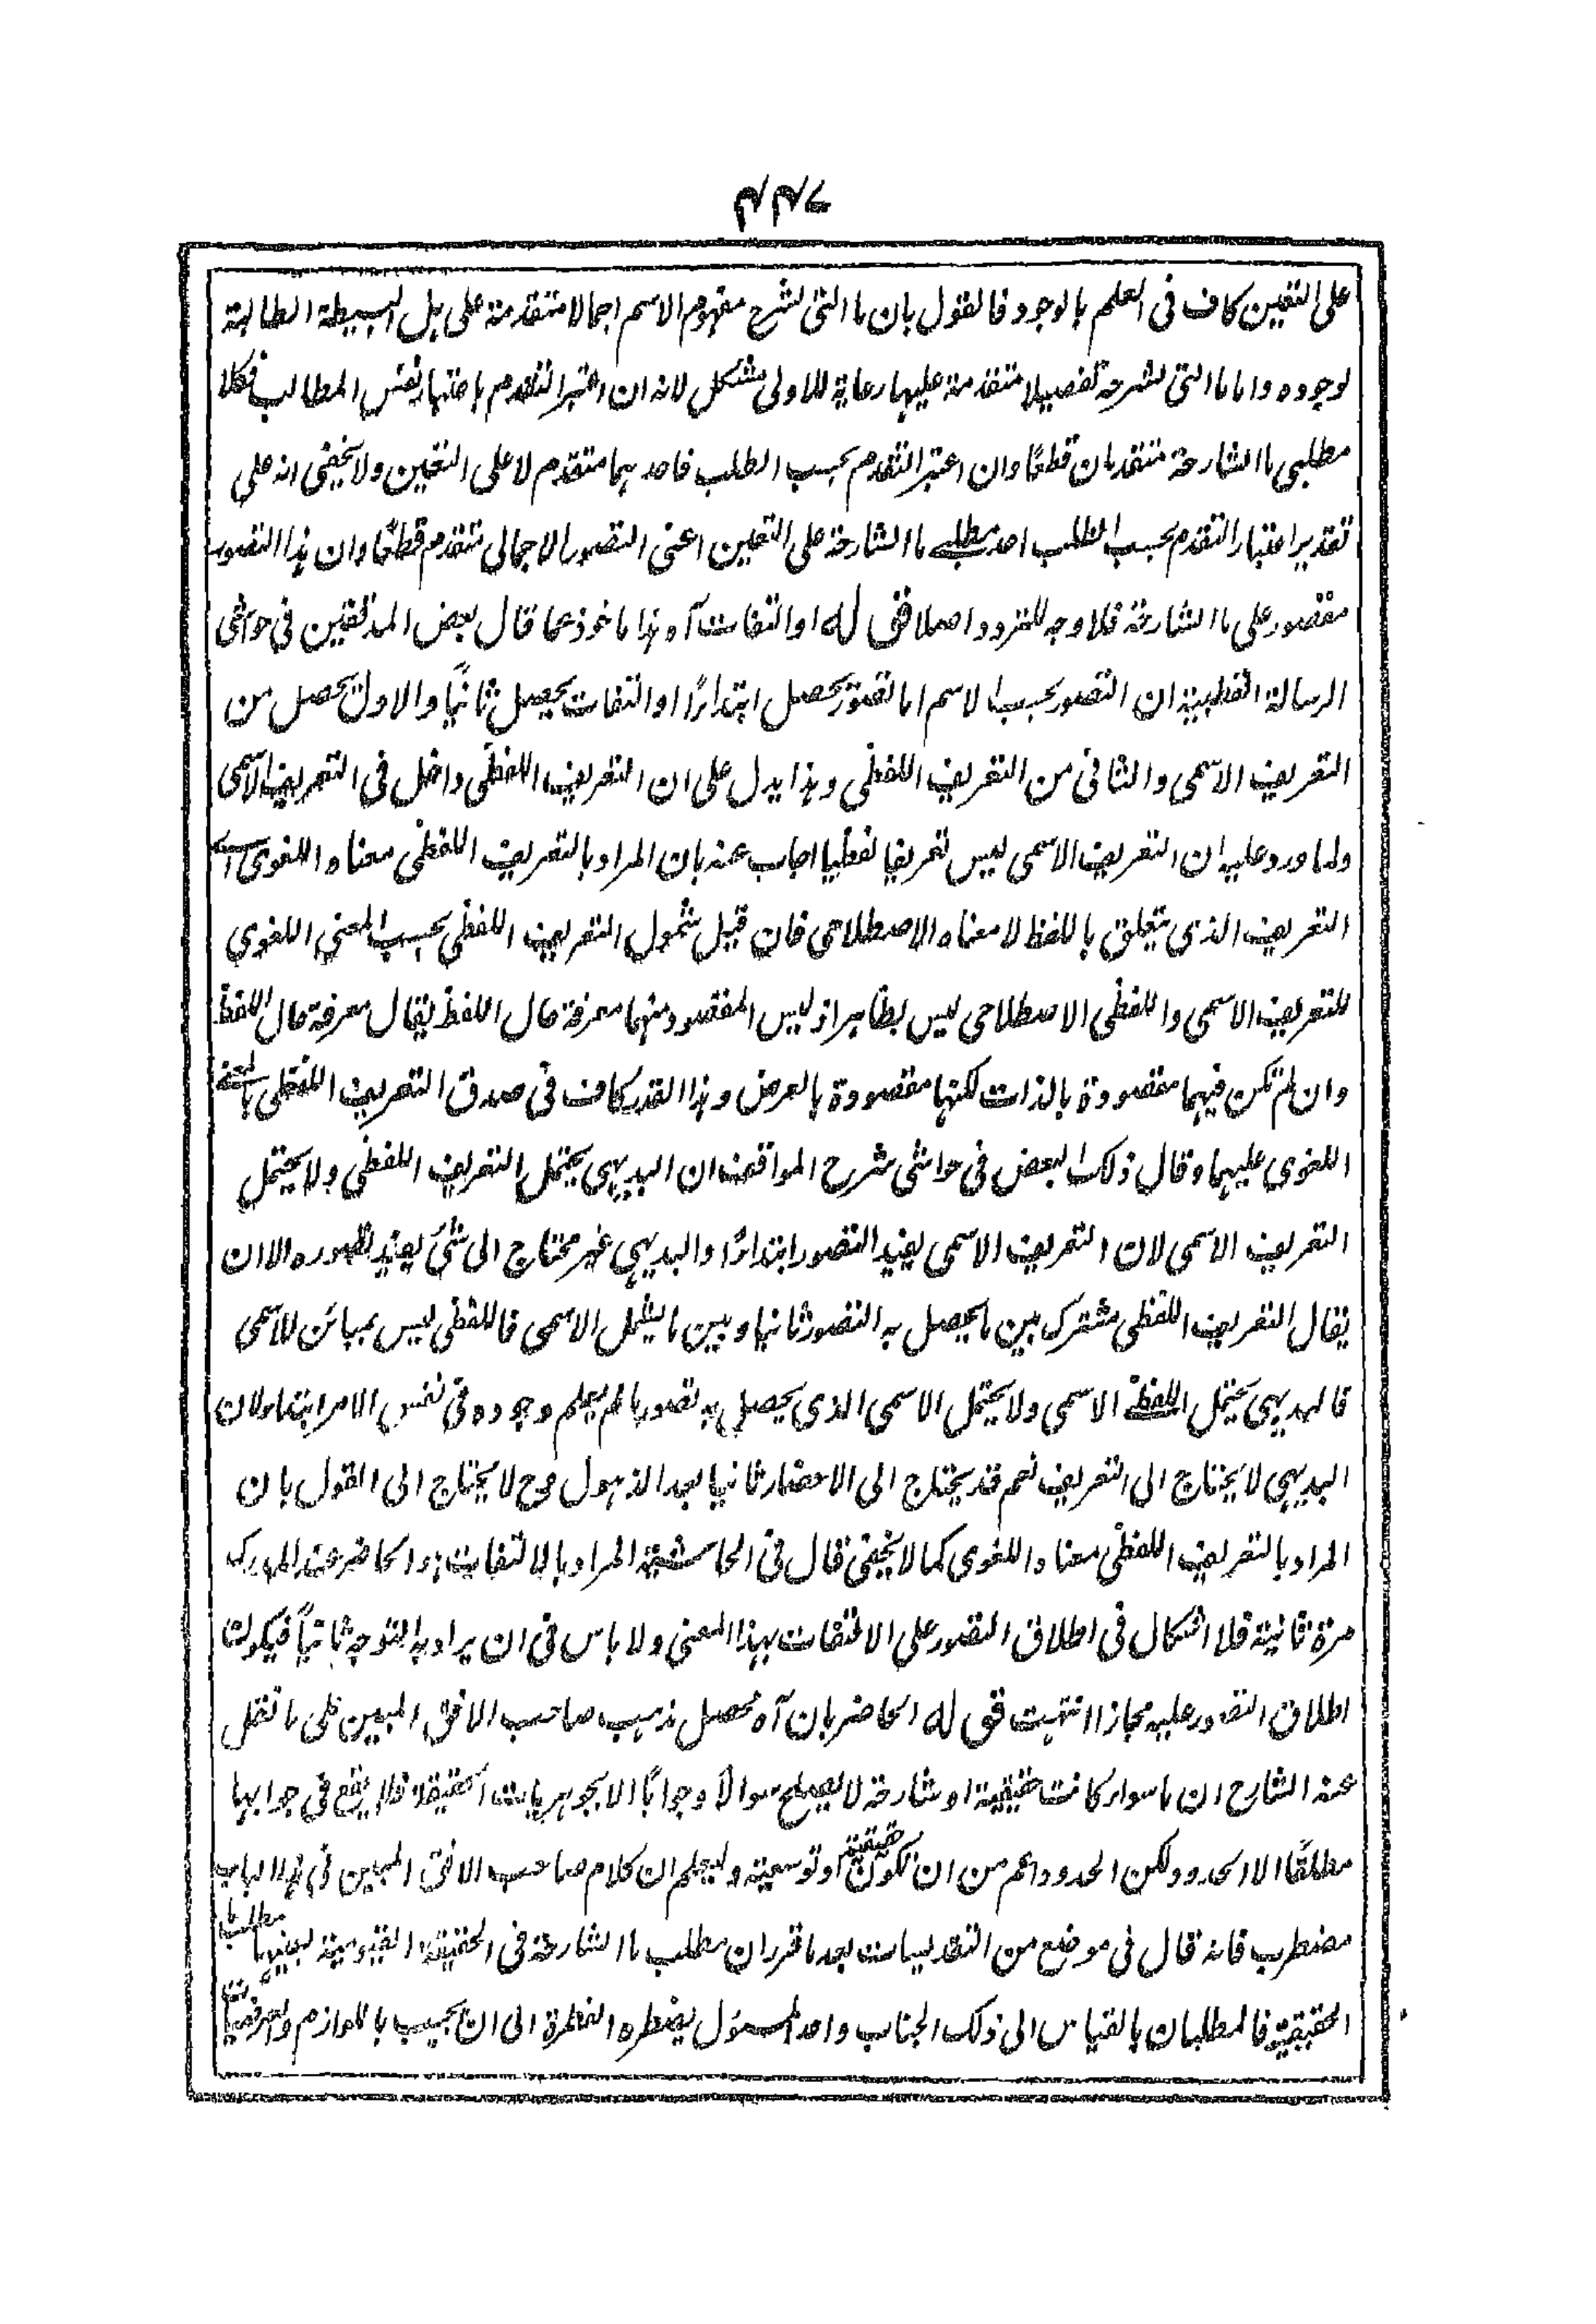 على التعيين كاف فى العلم بالوجود فالقول بان ما التى لشرح مفهوم الاسم اجمالا متقدمة على هل البسيطة الطالبة
لوجوده واما ما التى لشرحه تفصيلا متقدمة عليها رعاية للاولى مشكل لانه ان اعتبر التقدم باعتبار نفس المطالب فكلا
مطلبى ما الشارحة متقدمان قطعًا وان اعتبر التقدم بحسب الطلب فاحدهما متقدم لا على التعيين ولا يخفى انه على
تقدير اعتبار التقدم بحسب الطلب احد مطلبے ما الشارحة على التعيين اعنى التصور الاجمالى متقدم قطعًا وان هذا التصور
مقصور على ما الشارحة فلا وجه للتردد اصلا قق له او التفات آه هذا ماخوذ عما قال بعض المدققين فى حواشى
الرسالة القطبية ان التصور بحسب الاسم اما تصور يحصل ابتداءً او التفات يحصل ثانيًا والاول يحصل من
التعريف الاسمى والثانى من التعريف اللفظى وهذا يدل على ان التعريف اللفظى داخل فى التعريف الاسمى
ولما ورد عليه ان التعريف الاسمى ليس تعريفا لفظيا اجاب عنه بان المراد بالتعريف اللفظى معناه اللغوى اے
التعريف الذى يتعلق باللفظ لا معناه الاصطلاحى فان قيل شمول التعريف اللفظى بحسب المعنى اللغوى
للتعريف الاسمى واللفظى الاصطلاحى ليس بظاهر اذ ليس المقصود منهما معرفة حال اللفظ يقال معرفة حال اللفظ
وان لم تكن فيهما مقصودة بالذات لكنها مقصودة بالعرض وهذا القدر كاف فى صدق التعريف اللفظى بالمعنے
اللغوى عليهما وقال ذلك البعض فى حواشى شرح المواقف ان البديهى يحتمل التعريف اللفظى ولا يحتمل
التعريف الاسمى لان التعريف الاسمى يفيد التصور ابتداءً والبديهى غير محتاج الى شئ يفيد تصوره الا ان
يقال التعريف اللفظى مشترك بين ما يحصل به التصور ثانيا وبين ما يشمل الاسمى فاللفظى ليس بمبائن للاسمى
فالبديهى يحتمل اللفظے الاسمى ولا يحتمل الاسمى الذى يحصل به تصور ما لم يعلم وجوده فى نفس الامر ابتداء لان
البديهى لا يحتاج الى التعريف نعم قد يحتاج الى الاحضار ثانيا بعد الذهول فح لا يحتاج الى القول بان
المراد بالتعريف اللفظى معناه اللغوى كما لا يخفى قال فى الحاشية المراد بالالتفات هو الحاضر عند المدرك
مرة ثانية فلا اشكال فى اطلاق التصور على الالتفات بهذا المعنى ولا باس فى ان يراد به التوجه ثانيًا فيكون
اطلاق التصور عليه مجازا انتهت قق له الحاضر بان آه محصل مذهب صاحب الافق المبين على ما نقل
عنه الشارح ان ما سواء كانت حقيقية او شارحة لا يصلح سوالًا وجوابًا الا بجوهريات الحقيقة فلا يقع فى جوابها
مطلقًا الا الحدود ولكن الحدود اعم من ان تكون حقيقية او توسعية وليعلم ان كلام صاحب الافق المبين فى هذا الباب
مضطرب فانه قال فى موضع من التقديسات بعد ما قرر ان مطلب ما الشارحة فى الحقيقة القيومية بعينها مطلب ما
الحقيقية فالمطلبان بالقياس الى ذلك الجناب واحد المسؤل يضطره الفطرة الى ان يجيب باللوازم